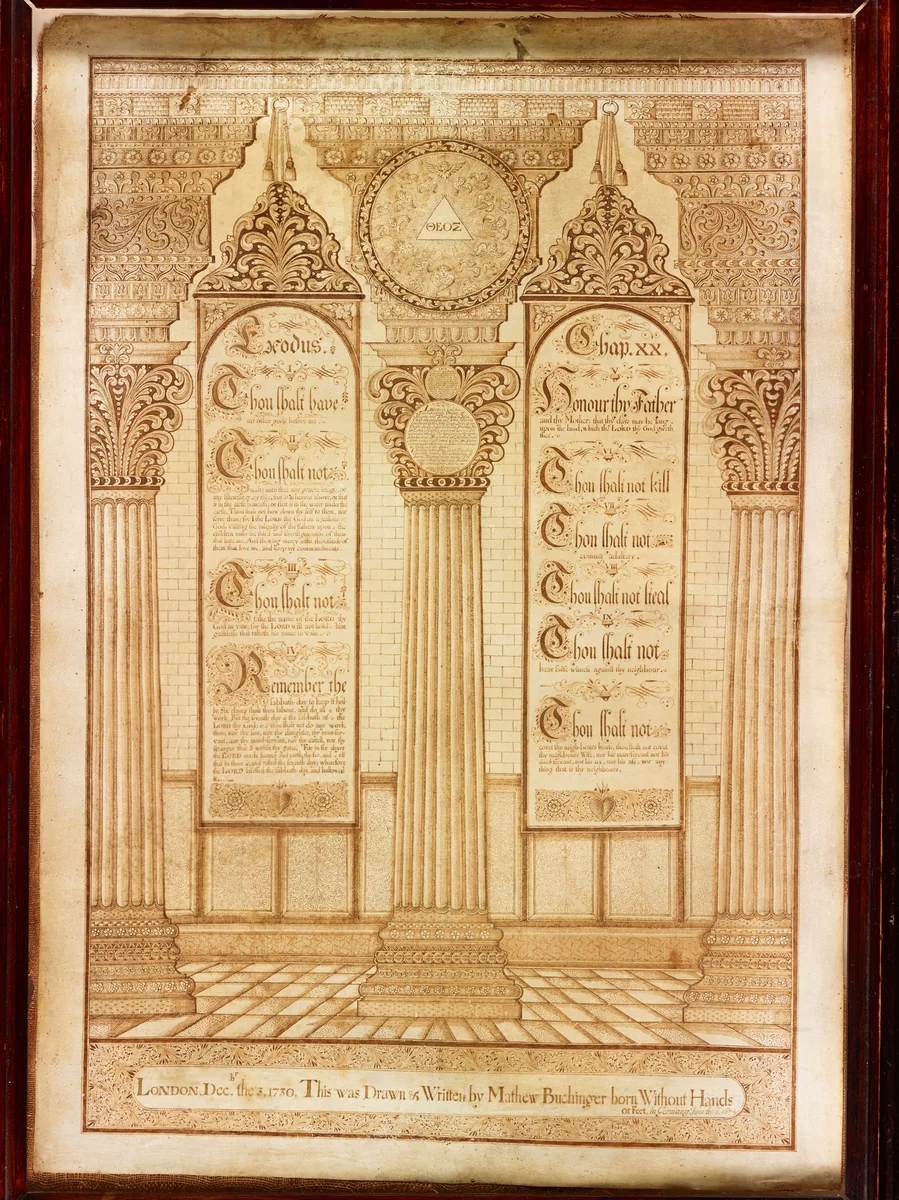 ΘΕΟΣ
Exodus.
I
Thou shalt have
no other gods before me
II
Thou shalt not
make unto thee any graven image, or
any likeness of any thing, that is in heaven above, or that
is in the earth beneath, or that is in the water under the
earth. Thou shalt not bow down thy self to them, nor
serve them: for I the LORD thy God am a jealous
God, visiting the iniquity of the fathers upon the
children unto the third and fourth generation of them
that hate me. And shewing mercy unto thousands of
them that love me, and keep my commandments.
III
Thou shalt not
take the name of the LORD thy
God in vain: for the LORD will not hold him
guiltless that taketh his name in vain
IV
Remember the
sabbath-day to keep it holy
Six dayes shalt thou labour, and do all thy
work. But the seventh day is the sabbath of the
LORD thy God: in it thou shalt not do any work,
thou, nor thy son, nor thy daughter, thy man-ser-
vant, nor thy maid-servant, nor thy cattel, nor thy
stranger that is within thy gates. For in six dayes
the LORD made heaven and earth, the sea, and all
that in them is, and rested the seventh day; wherefore
the LORD blessed the sabbath-day, and hallowed
Chap. XX.
V
Honour thy Father
and thy Mother: that thy days may be long
upon the land, which the LORD thy God giveth
thee.
Thou shalt not kill
VII
Thou shalt not
commit adultery.
VIII
Thou shalt not steal
IX
Thou shalt not
bear false witness against thy neighbour.
X
Thou shalt not
covet thy neighbours house, thou shalt not covet
thy neighbours Wife, nor his man-servant nor his
maid-servant, nor his ox, nor his ass, nor any
thing that is thy neighbours.
LONDON. Decbr. the 3, 1730. This was Drawn & Written by Mathew Buchinger born Without Hands
or Feet, in Germany June the 2,